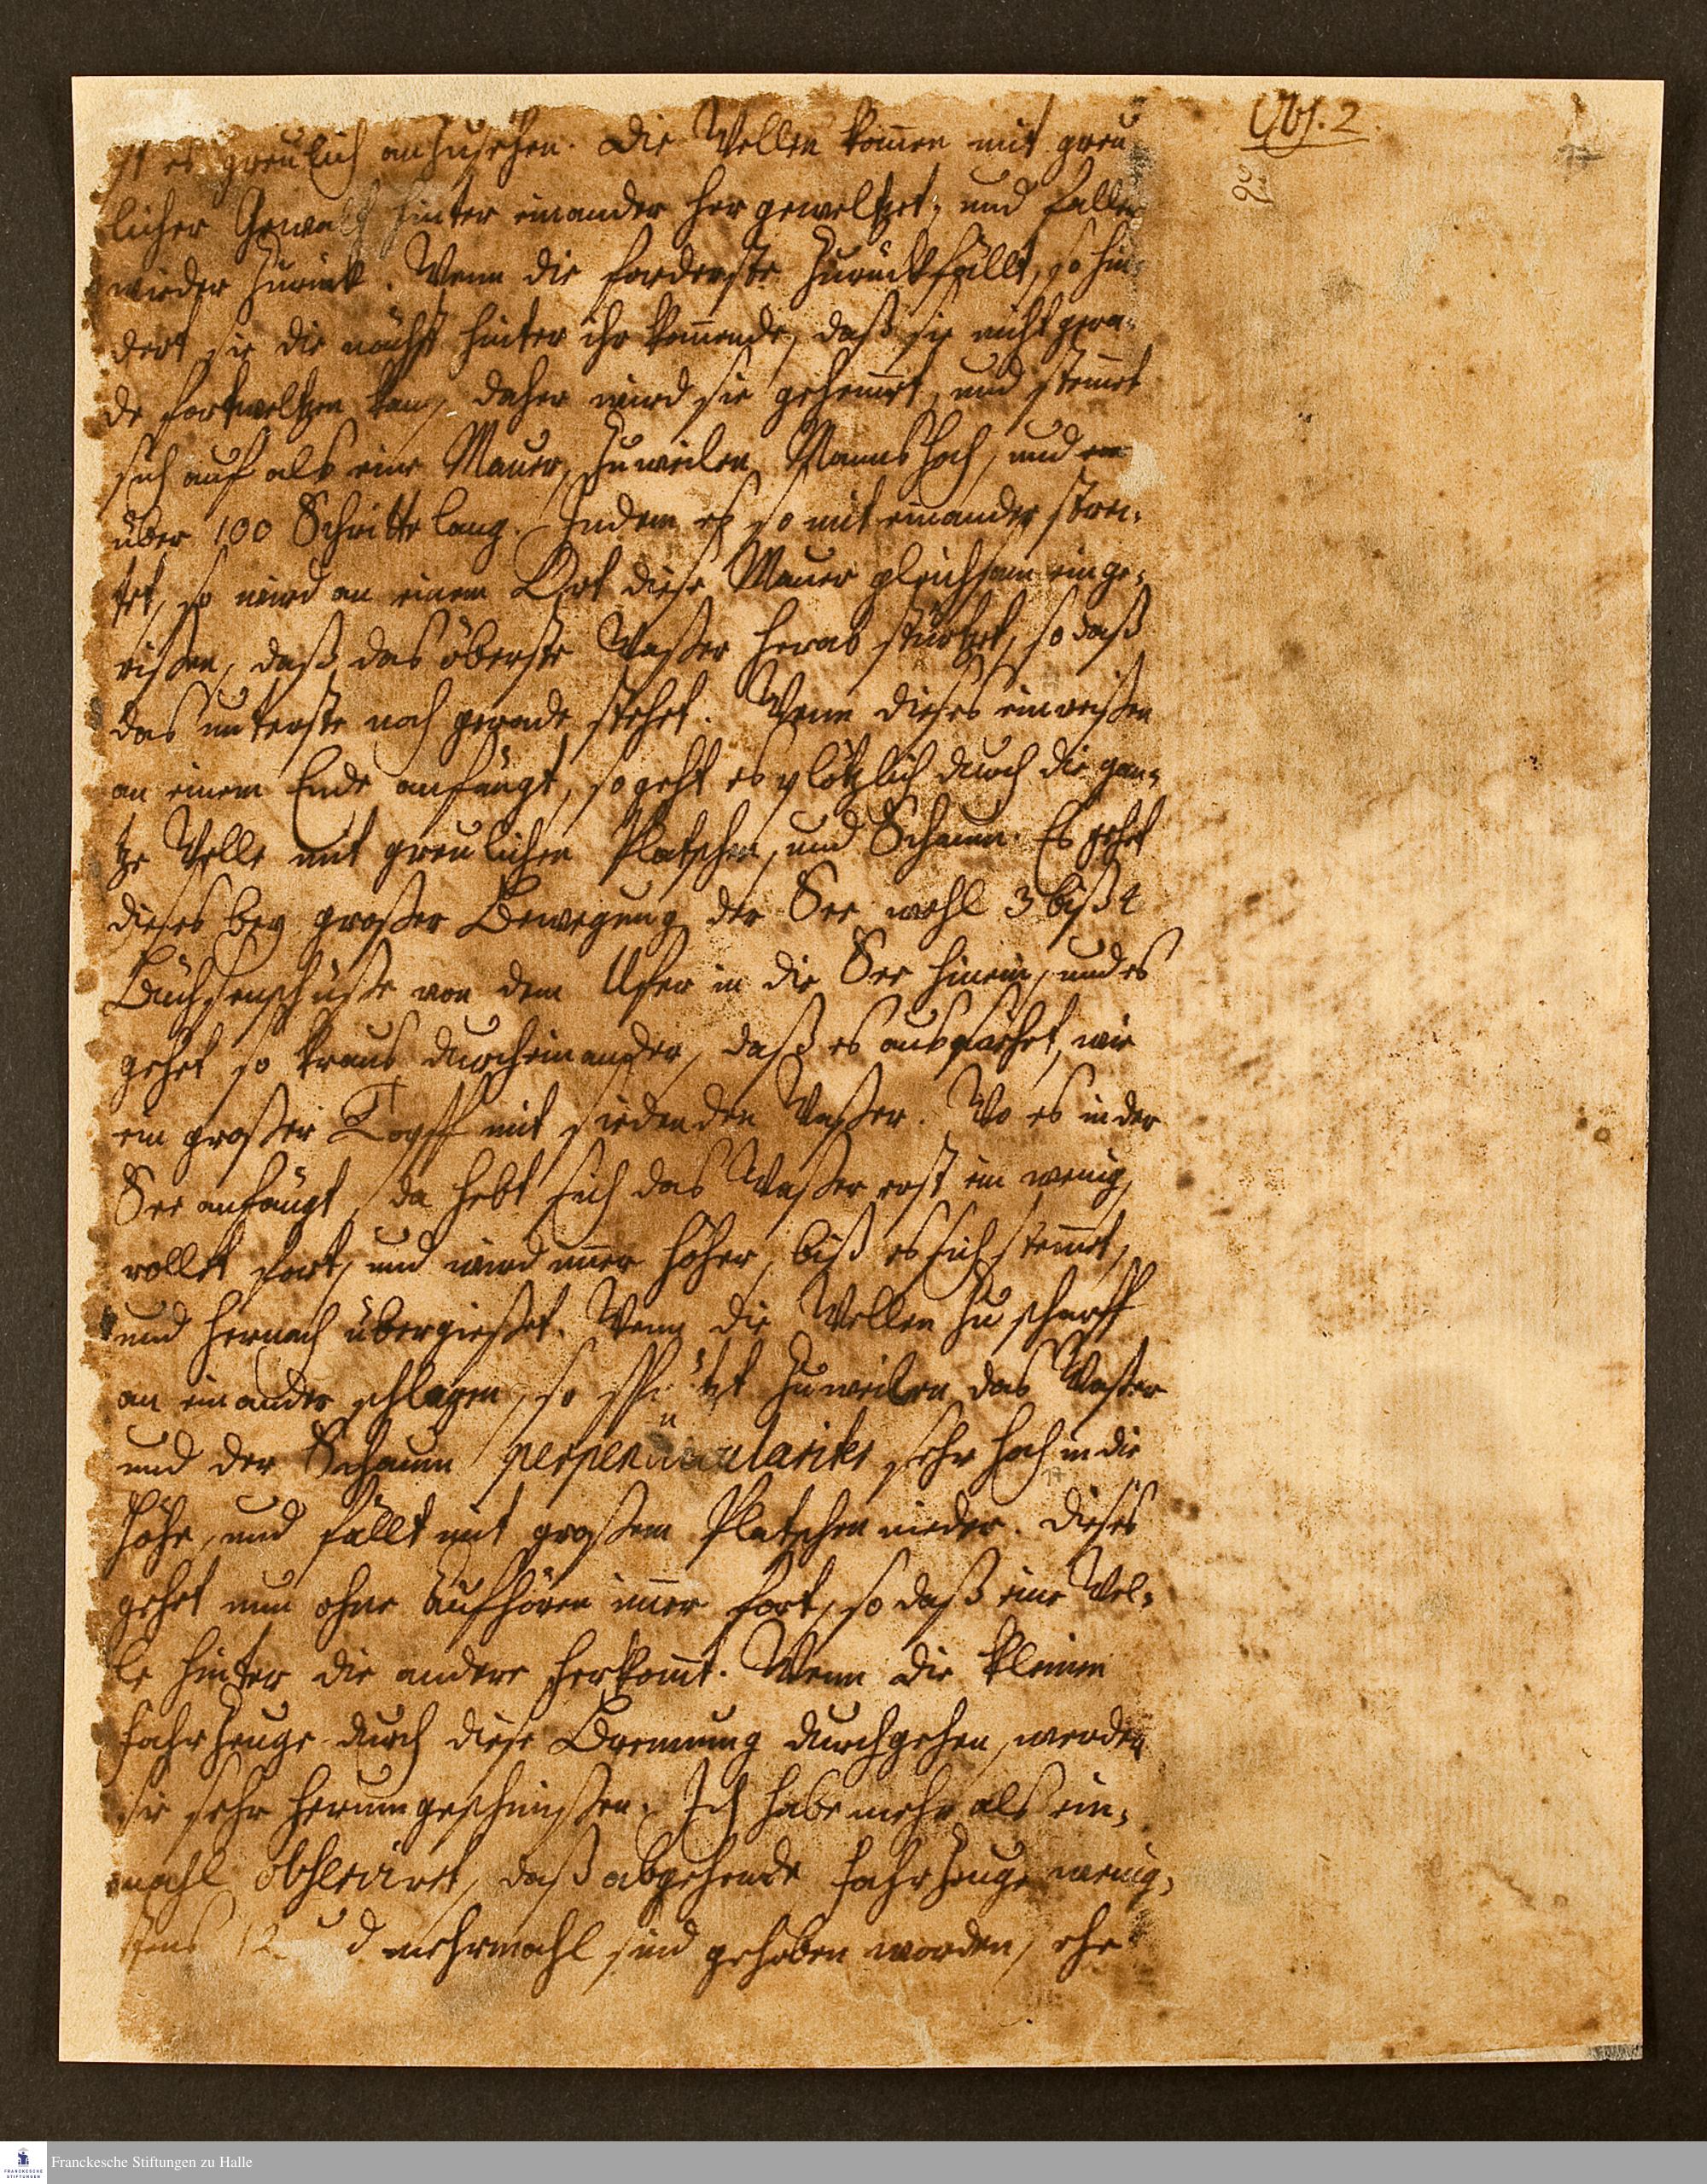 Obs. 2.
ist es greulich anzusehen. Die Wellen kom̄en mit greu
licher Gewalt hinter einander her geweltzet, und fallen
wieder zurück. Wenn die forderste zurückfällt, so hin-
dert sie die nächst hinter ihr kom̄ende, daß sie nicht gera-
de fortweltzen kan, daher wird sie gehem̄et, und stem̄et
sich auf als eine Mauer, zuweilen Manns hoch, und
über 100 Schritte lang. Indem es so mit einander strei-
tet, so wird an einem Ort diese Mauer gleichsam einge-
rißen, daß das öberste Waßer herab stürtzet, so daß
das unterste noch gerade stehet. Wenn dieses einreißen
an einem Ende anfängt, so geht es plötzlich durch die gan-
tze Welle mit greulichen Platschen, und Schaum. Es gehet
dieses bey großer Bewegung der See wohl 3 biß 4
Büchsenschüße von dem Ufer in die See hinein, und es
gehet so kraus durcheinander, daß es aussiehet, wie
ein großer Topff mit siedenden Waßer. Wo es in der
See anfängt, da hebt sich das Waßer erst ein wenig,
rollet fort, und wird im̄er höher, biß es sich stem̄et,
und hernach übergießet. Wenn die Wellen zu scharff
an einander schlagen, so zuweilen das Waßer
und der Schaum perpendiculariter sehr hoch in die
Höhe, und fällt mit großem Platschen nieder. Dieses
gehet nun ohne Aufhören im̄er fort, so daß eine Wel-
le hinter die andere herkom̄t. Wenn die kleinen
Fahrzeuge durch diese Brennung durchgehen, werden
sie sehr herumgeschmißen. Ich habe mehr als ein-
mahl observiret, daß abgehende Fahrzeuge wenig-
stens 12 und mehrmahl sind gehoben worden, ehe
Franckesche Stiftungen zu Halle
FRANCKESCHE
STIFTUNGEN